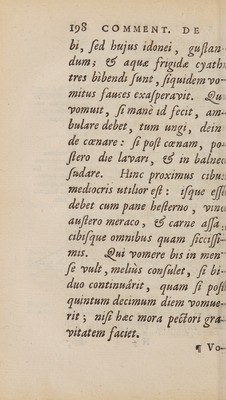 198 COMMENT. DE
bi, sed hujus idonei, gustan-
dum; & aquæ frigidæ cyath
tres bibendi sunt, siquidem vo-
mitus fauces exasperavit. Qu
vomuit, si manè id fecit, am-
bulare debet, tum ungi, dein
de cœnare: si post cœnam, po-
stero die lavari, & in balneo
sudare. Hinc proximus cibu
mediocris utilior est: isque esse
debet cum pane hesterno, vino
austero meraco, & carne assa,
cibisque omnibus quam siccissi-
mis. Qui vomere bis in men
se vult, meliùs consulet, si bi-
duo continuârit, quam si post
quintum decimum diem vomue-
rit; nisi hæc mora pectori gra-
vitatem faciet.
¶ Vo-